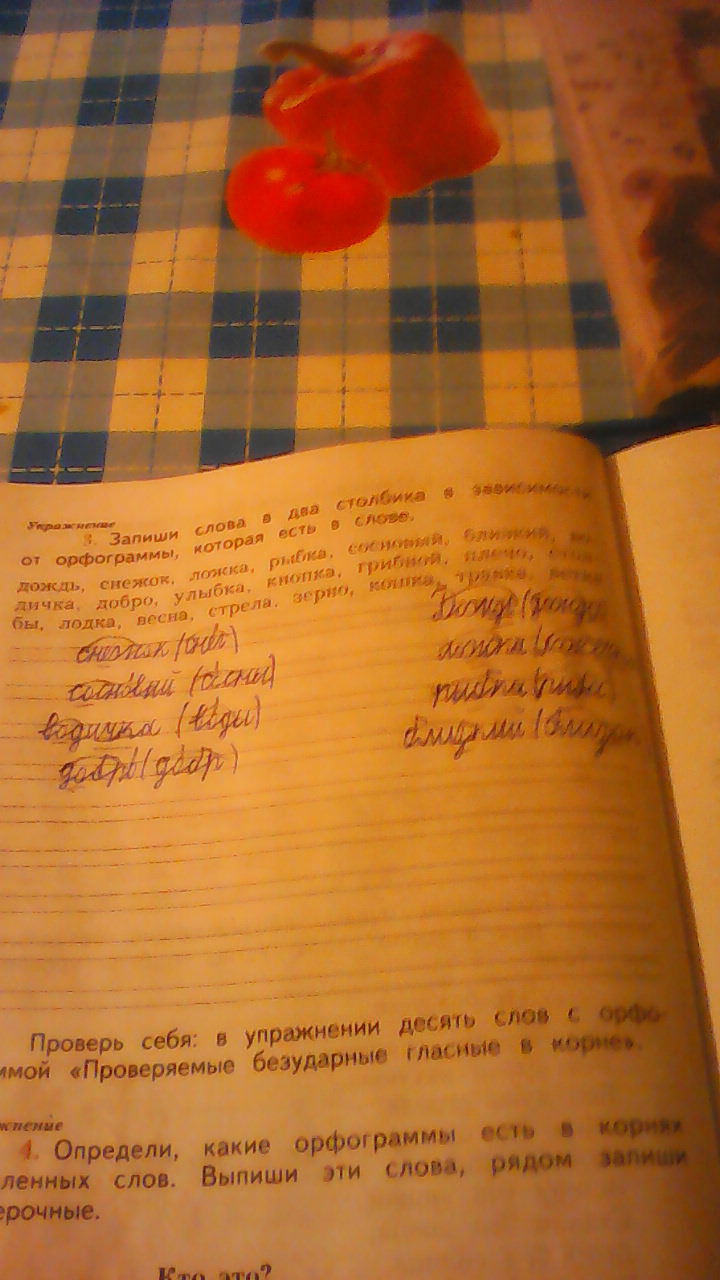 Упражнение
3. Запиши слова в два столбика в зависимости
от орфограммы, которая есть в слове.
дождь, снежок, ложка, рыбка, сосновый, близкий, во-
дичка, добро, улыбка, кнопка, грибной, плечо, стол-
бы, лодка, весна, стрела, зерно, кошка, травка, ветка
снежок (снег) дождь (дожди
сосновый (сосны) ложка
водичка (воды) рыбка (рыба)
добро (добр) близкий (близок
Проверь себя: в упражнении десять слов с орфо-
ммой «Проверяемые безударные гласные в корне».
жнение
4. Определи, какие орфограммы есть в корнях
ленных слов. Выпиши эти слова, рядом запиши
ерочные.
Кто это?